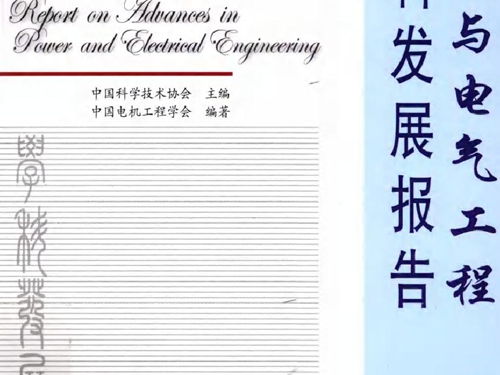 Report on Advances in
Power and Electrical Engineering
中国科学技术协会 主编
中国电机工程学会 编著
与电气工程
发展报告
學科發